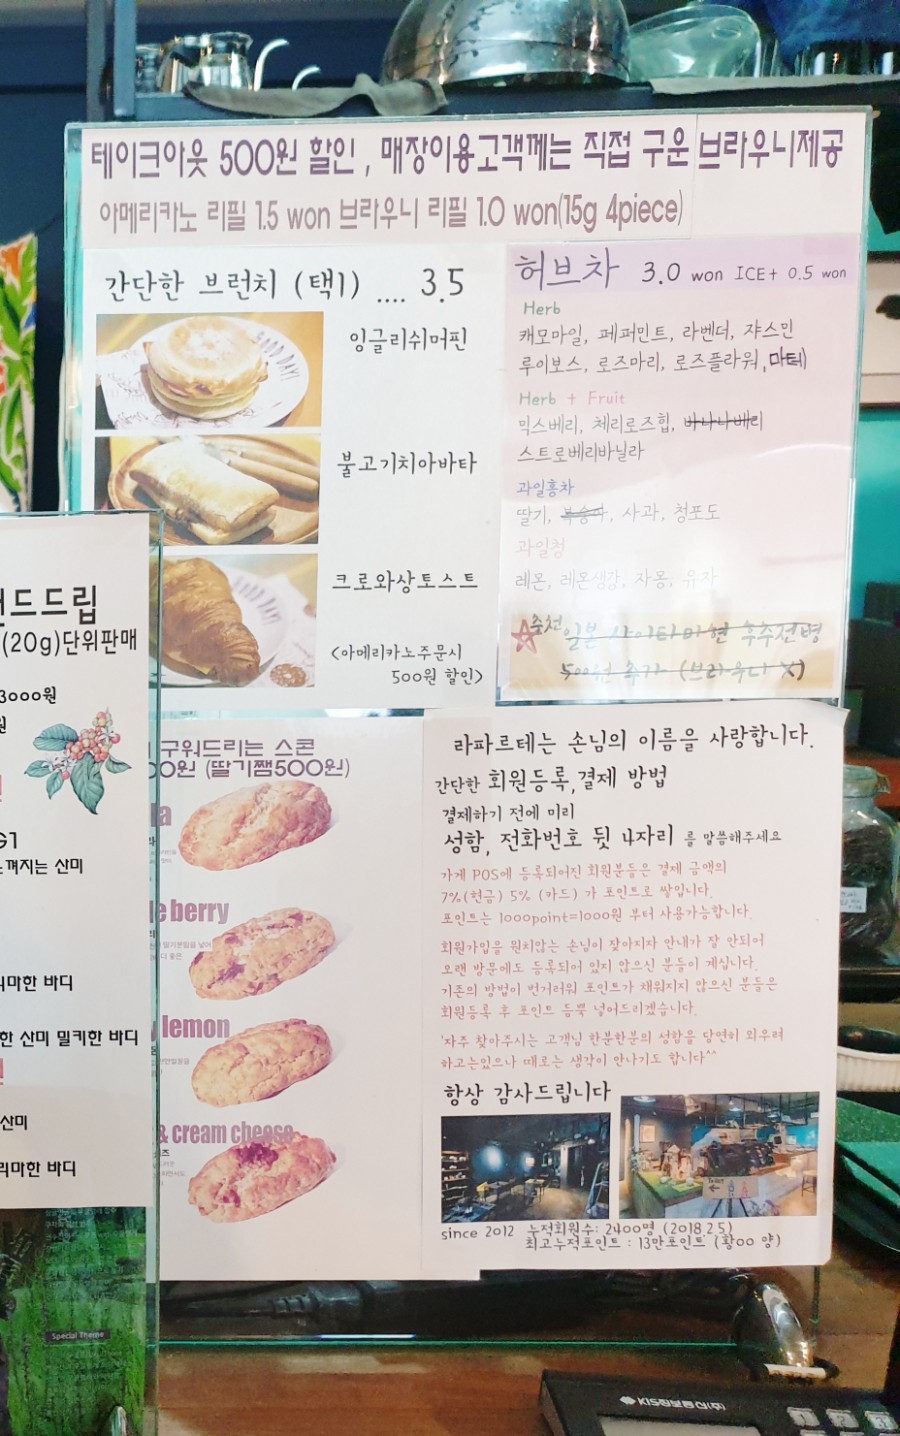 테이크아웃 500원 할인, 매장이용고객께는 직접 구운 브라우니제공
아메리카노 리필 1.5 won 브라우니 리필 1.0 won(15g 4piece)
간단한 브런치 (택1) .... 3.5
잉글리쉬머핀
불고기치아바타
크로와상토스트
<아메리카노주문시
500원 할인>
허브차 3.0 won ICE+ 0.5 won
Herb
캐모마일, 페퍼민트, 라벤더, 쟈스민
루이보스, 로즈마리, 로즈플라워, 마테
Herb + Fruit
믹스베리, 체리로즈힙, 바나나베리
스트로베리바닐라
과일홍차
딸기, 복숭아, 사과, 청포도
과일청
레몬, 레몬생강, 자몽, 유자
추천
500원 추가 (브라우니 X)
드드립
(20g)단위판매
3000원
원
G1
느껴지는 산미
마한 바디
한 산미 밀키한 바디
산미
리마한 바디
Special Theme
구워드리는 스콘
00원 (딸기쨈500원)
la
le berry
lemon
& cream cheese
라파르테는 손님의 이름을 사랑합니다.
간단한 회원등록,결제 방법
결제하기 전에 미리
성함, 전화번호 뒷 4자리 를 말씀해주세요
가게 POS에 등록되어진 회원분들은 결제 금액의
7%(현금) 5% (카드) 가 포인트로 쌓입니다.
포인트는 1000point=1000원 부터 사용가능합니다.
회원가입을 원치않는 손님이 잦아지자 안내가 잘 안되어
오랜 방문에도 등록되어 있지 않으신 분들이 계십니다.
기존의 방법이 번거러워 포인트가 채워지지 않으신 분들은
회원등록 후 포인트 듬뿍 넣어드리겠습니다.
'자주 찾아주시는 고객님 한분한분의 성함을 당연히 외우려
하고는있으나 때로는 생각이 안나기도 합니다^^
항상 감사드립니다
since 2012 누적회원수: 2400명 (2018.2.5)
최고누적포인트 : 13만포인트 (황00 양)
KIS정보통신(주)
1 2 3